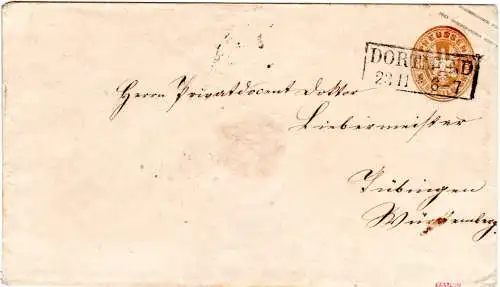 PREUSSEN
DORTMUND
23 11 6-7
Herrn Privatdocent Doktor
Liebermeister
Tübingen
Württemberg.